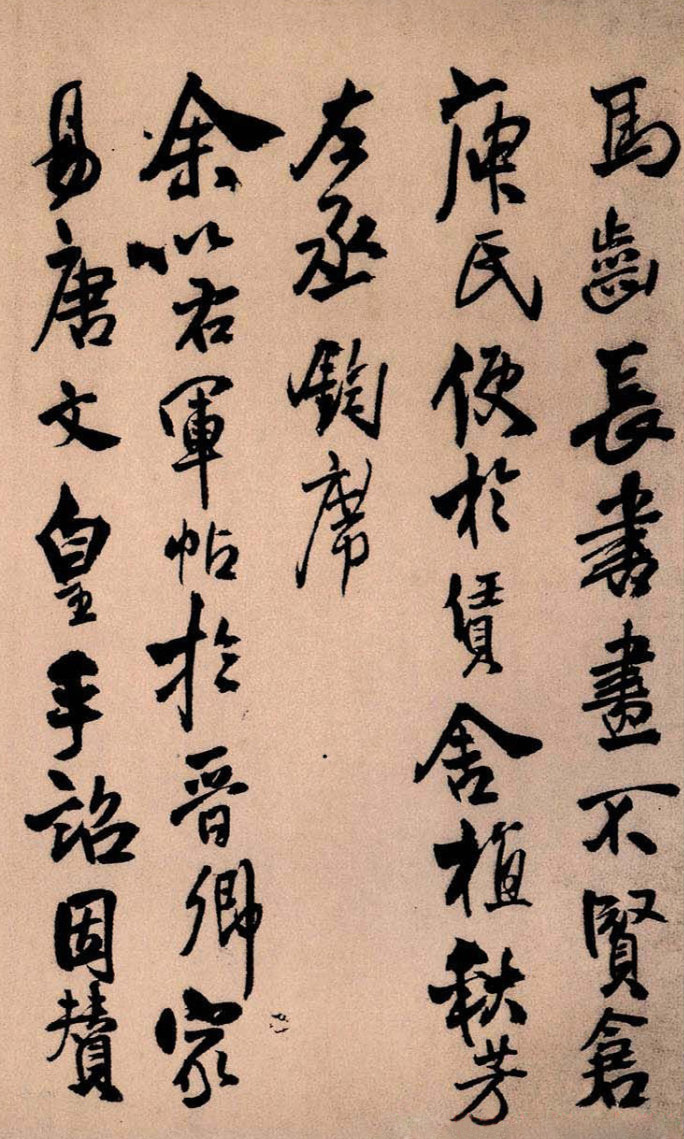 馬齒長書畫不賢倉
庾氏便於賃舍植秋芳
左丞鈞席
余以右軍帖於晉卿家
易唐文皇手詔因贊